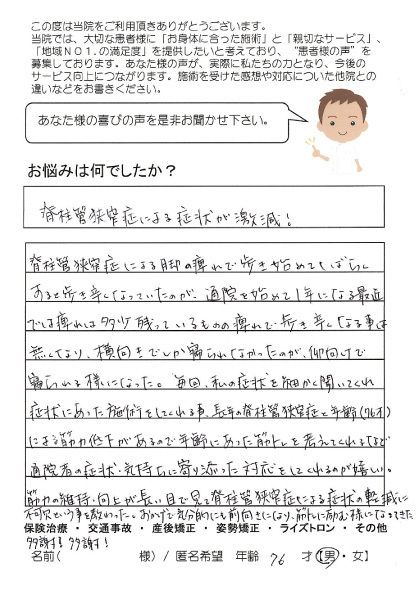 この度は当院をご利用頂きありがとうございます。
当院では、大切な患者様に「お身体に合った施術」と「親切なサービス」、
「地域NO1.の満足度」を提供したいと考えており、“患者様の声”を
募集しております。あなた様の声が、実際に私たちの力となり、今後の
サービス向上につながります。施術を受けた感想や対応についた他院との
違いなどをお書きください。
あなた様の喜びの声を是非お聞かせ下さい。
お悩みは何でしたか？
脊柱管狭窄症による症状が激減！
脊柱管狭窄症による脚の痺れで歩き始めてしばらく
すると歩き辛くなっていたのが、通院を始めて1年になる最近
では痺れは多少残っているものの痺れで歩き辛くなる事は
無くなり、横向きでしか寝られなかったのが、仰向けで
寝られる様になった。毎回、私の症状を細かく聞いてくれ
症状にあった施術をしてくれる事、長年の脊柱管狭窄症と年齢(76才)
による筋力低下があるので年齢にあった筋トレを考えてくれるなど
通院者の症状・気持ちに寄り添った対応をしてくれるのが嬉しい。
筋力の維持・向上が長い目で見て脊柱管狭窄症による症状の軽減に
不可欠という事を教わった。おかげで気分的にも前向きになり、筋トレに励む様になってきた
保険治療 ・ 交通事故 ・ 産後矯正 ・ 姿勢矯正 ・ ライズトロン ・ その他
多謝！多謝！
名前（ 様）／匿名希望 年齢 76 才【男・女】